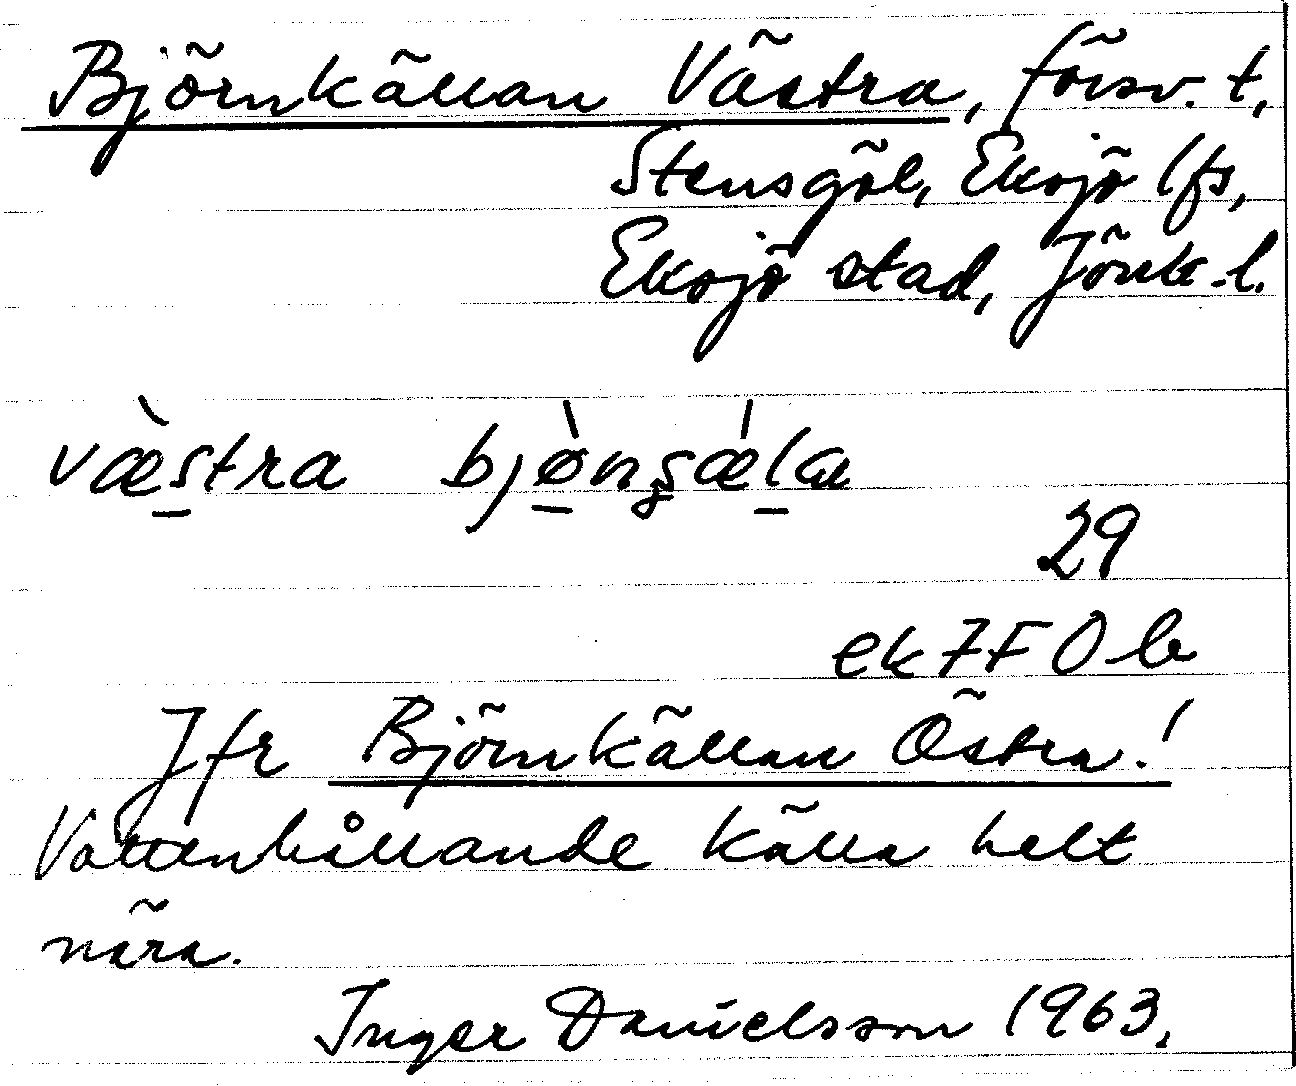 Björnkällan Västra, försv. t,
Stensgöl, Eksjö lfs,
Eksjö stad, Jönk. l.
væ̀stra bjø̀nʂǽla
29
ek 7F 0 b
Jfr Björnkällan Östra!
Vattenhållande källa helt
nära.
Inger Danielsson 1963.